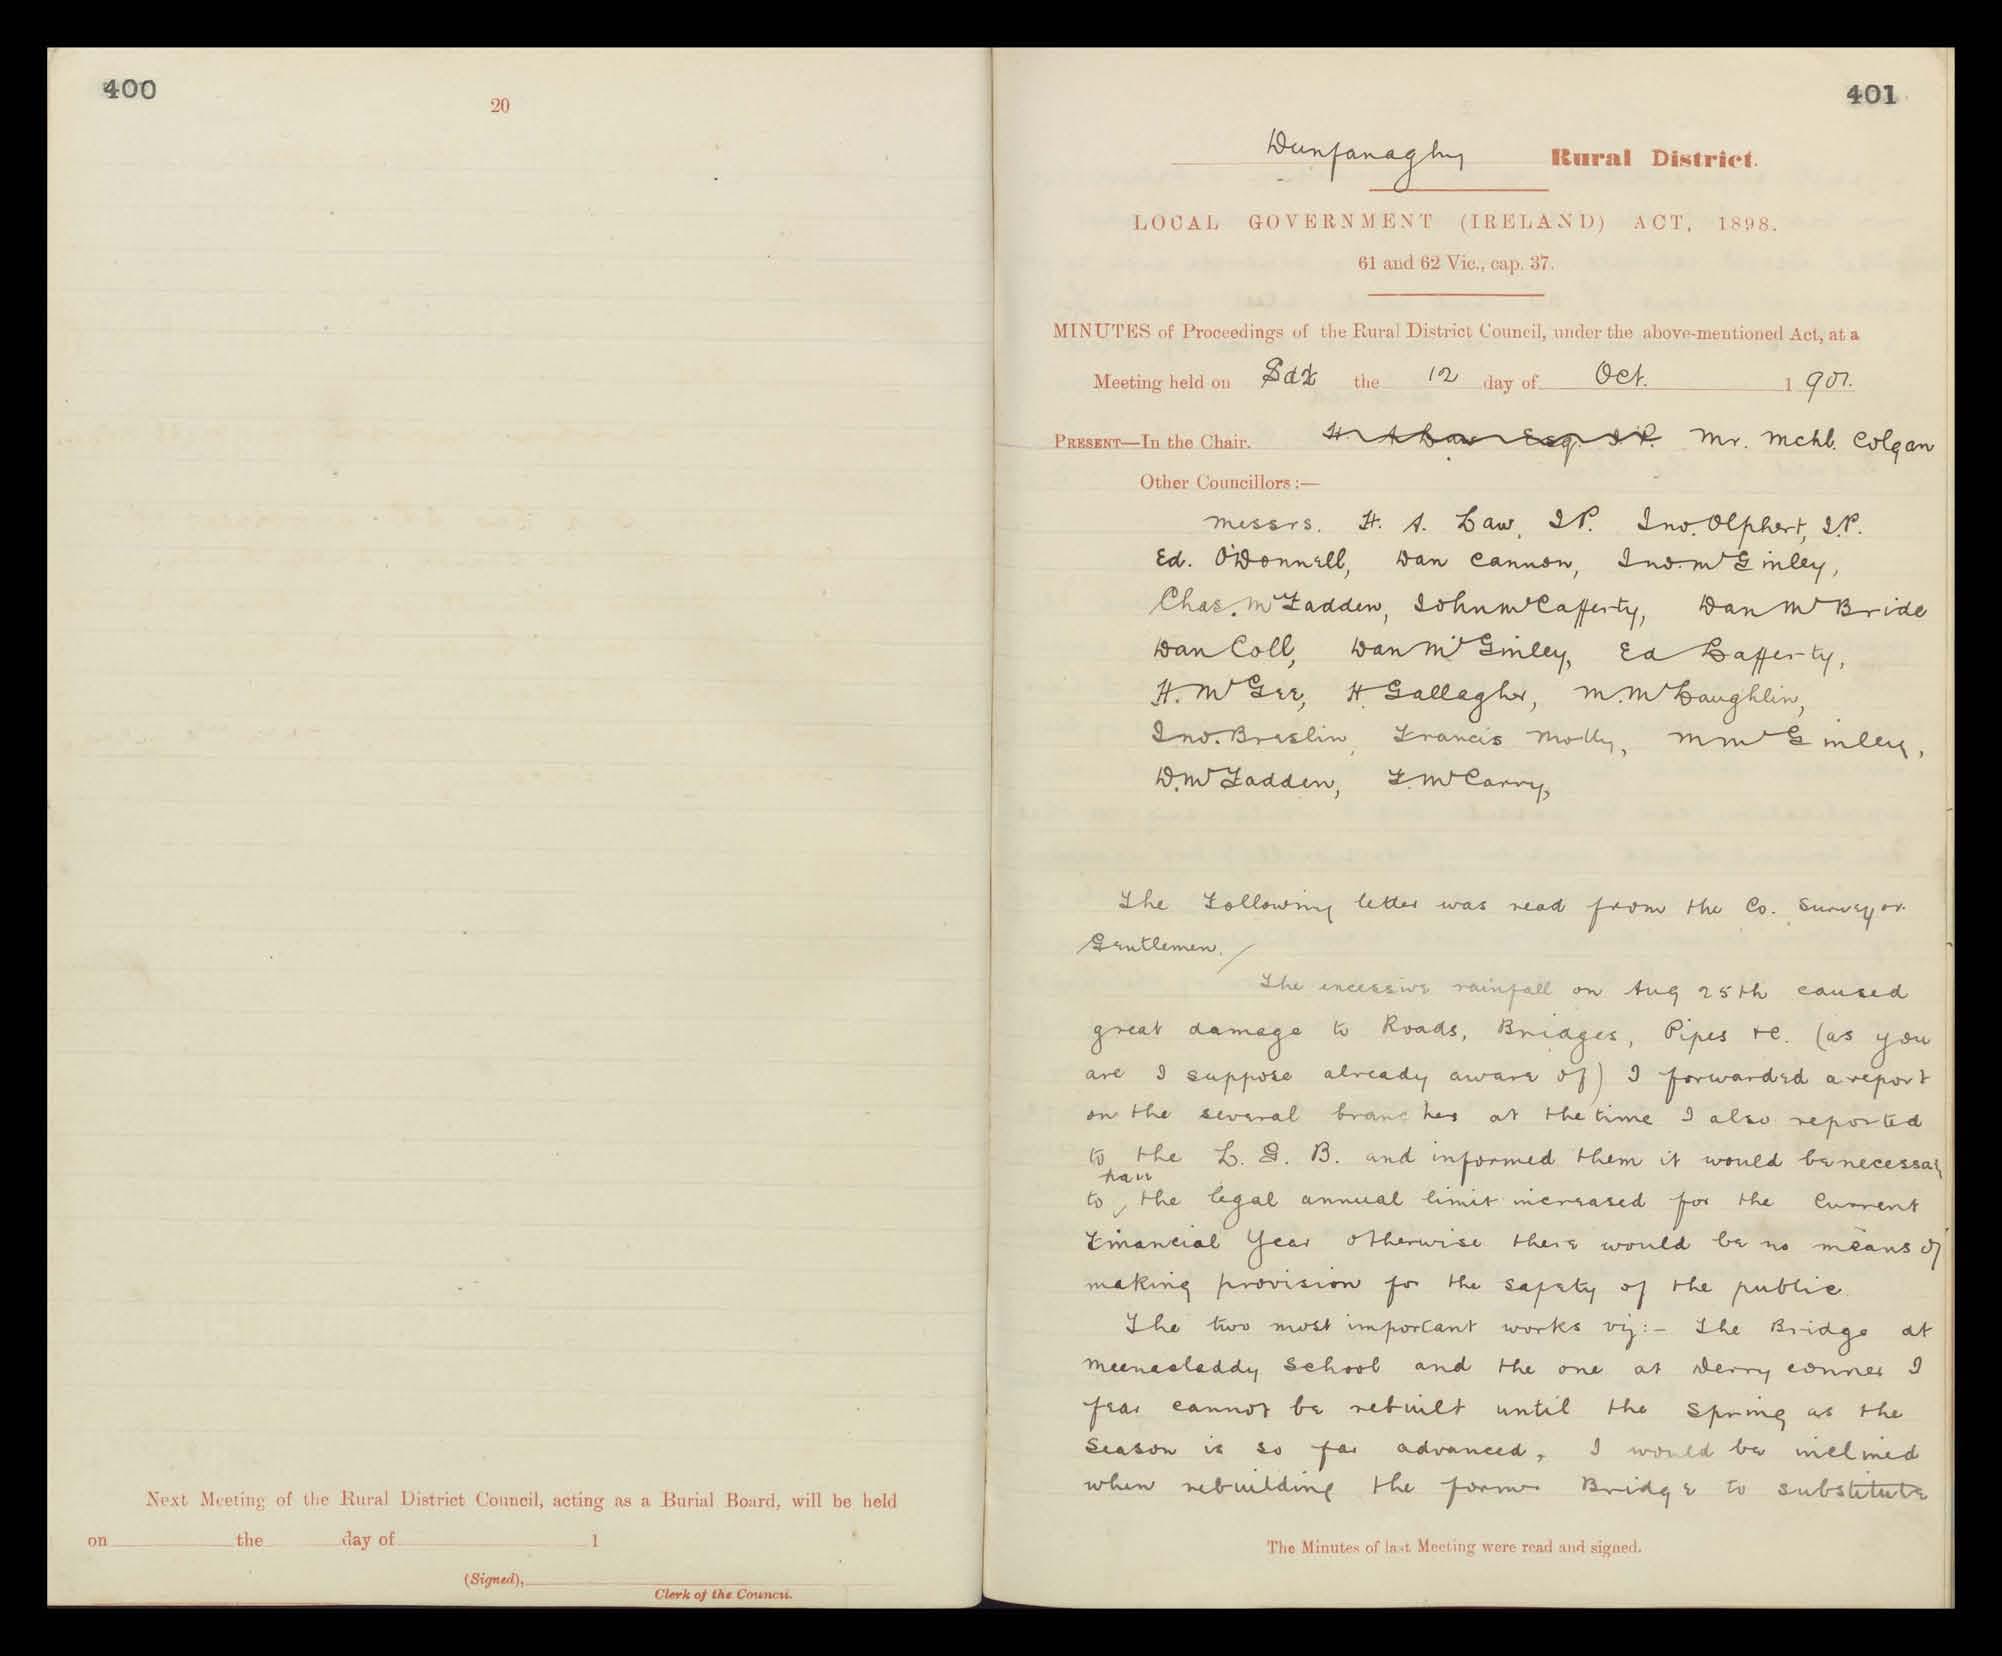 400
20
Next Meeting of the Rural District Council, acting as a Burial Board, will be held
on the day of 1
(Signed),
Clerk of the Council.
401
Dunfanaghy Rural District.
LOCAL GOVERNMENT (IRELAND) ACT, 1898.
61 and 62 Vic., cap. 37.
MINUTES of Proceedings of the Rural District Council, under the above-mentioned Act, at a
Meeting held on Sat the 12 day of Oct. 1 901.
PRESENT—In the Chair. H. A Law Esq. J.P. Mr. Mchl. Colgan
Other Councillors:—
Messrs. H. A. Law, J.P. Jno. Olphert, J.P.
Ed. O'Donnell, Dan Cannon, Jno. McGinley,
Chas. McFadden, John McCafferty, Dan McBride
Dan Coll, Dan McGinley, Ed Lafferty,
H. McGee, H Gallagher, M. McLaughlin,
Jno. Breslin, Francis Molly, M McGinley,
D. McFadden, F. McCarry,
The Following letter was read from the Co. Surveyor
Gentlemen./
The excessive rainfall on Aug 25th caused
great damage to Roads, Bridges, Pipes &c. (as you
are I suppose already aware of) I forwarded a report
on the several branches at the time I also reported
to the L. G. B. and informed them it would be necessary
to have the legal annual limit increased for the Current
Financial Year otherwise there would be no means of
making provision for the safety of the public
The two most important works viz:- The Bridge at
Meenacladdy School and the one at Derryconner I
fear cannot be rebuilt until the Spring as the
Season is so far advanced, I would be inclined
when rebuilding the former Bridge to substitute
The Minutes of last Meeting were read and signed.